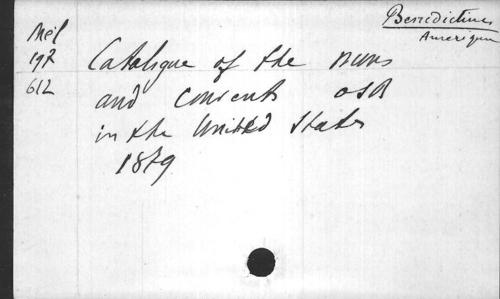 Bénédictines
Amérique
Mél
197
612
Catalogue of the nuns
and convents OSB
in the United States
1879